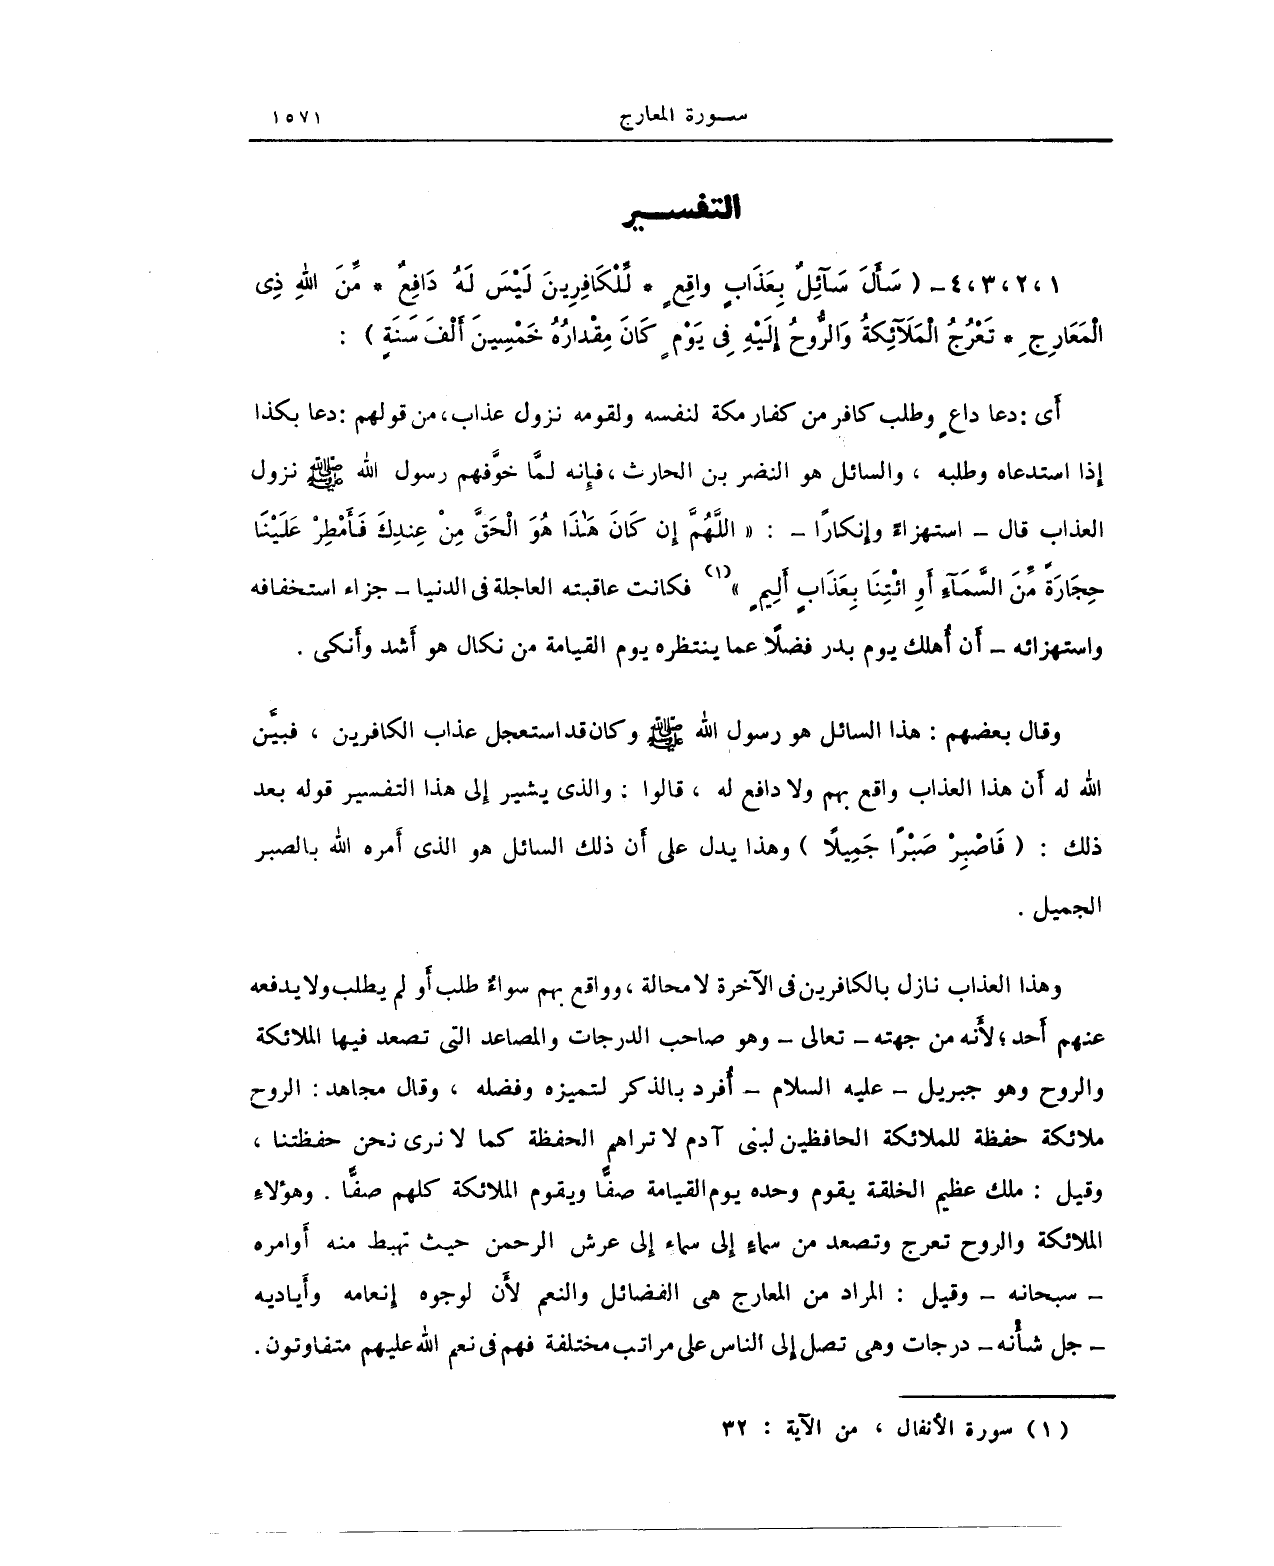 سورة المعارج ١٥٧١
التفسير
١ ، ٢ ، ٣ ، ٤ ــ ( سَأَلَ سَآئِلٌ بِعَذَابٍ واقِعٍ * لِّلْكَافِرِينَ لَيْسَ لَهُ دَافِعٌ * مِّنَ اللهِ ذِى
الْمَعَارِجِ * تَعْرُجُ الْمَلَآئِكَةُ وَالرُّوحُ إِلَيْهِ فِى يَوْمٍ كَانَ مِقْدارُهُ خَمْسِينَ أَلْفَ سَنَةٍ ) :
أى : دعا داعٍ وطلب كافر من كفار مكة لنفسه ولقومه نزول عذاب ، من قولهم : دعا بكذا
إذا استدعاه وطلبه ، والسائل هو النضر بن الحارث ، فإنه لمَّا خوَّفهم رسول الله ﷺ نزول
العذاب قال ــ استهزاءً وإنكارًا ــ : « اللَّهُمَّ إِن كَانَ هَٰذَا هُوَ الْحَقَّ مِنْ عِندِكَ فَأَمْطِرْ عَلَيْنَا
حِجَارَةً مِّنَ السَّمَآءِ أَوِ ائْتِنَا بِعَذَابٍ أَلِيمٍ »(١) فكانت عاقبته العاجلة فى الدنيا ــ جزاء استخفافه
واستهزائه ــ أن أُهلك يوم بدر فضلًا عما ينتظره يوم القيامة من نكال هو أشد وأنكى .
وقال بعضهم : هذا السائل هو رسول الله ﷺ وكان قد استعجل عذاب الكافرين ، فبيَّن
الله له أن هذا العذاب واقع بهم ولا دافع له ، قالوا : والذى يشير إلى هذا التفسير قوله بعد
ذلك : ( فَاصْبِرْ صَبْرًا جَمِيلًا ) وهذا يدل على أن ذلك السائل هو الذى أمره الله بالصبر
الجميل .
وهذا العذاب نازل بالكافرين فى الآخرة لا محالة ، وواقع بهم سواءٌ طلب أو لم يطلب ولا يدفعه
عنهم أحد ؛ لأنه من جهته ــ تعالى ــ وهو صاحب الدرجات والمصاعد التى تصعد فيها الملائكة
والروح وهو جبريل ــ عليه السلام ــ أُفرد بالذكر لتميزه وفضله ، وقال مجاهد : الروح
ملائكة حفظة للملائكة الحافظين لبنى آدم لا تراهم الحفظة كما لا نرى نحن حفظتنا ،
وقيل : ملك عظيم الخلقة يقوم وحده يوم القيامة صفًّا ويقوم الملائكة كلهم صفًّا . وهؤلاءِ
الملائكة والروح تعرج وتصعد من سماءٍ إلى سماء إلى عرش الرحمن حيث تهبط منه أوامره
ــ سبحانه ــ وقيل : المراد من المعارج هى الفضائل والنعم لأن لوجوه إنعامه وأياديه
ــ جل شأنه ــ درجات وهى تصل إلى الناس على مراتب مختلفة فهم فى نعم الله عليهم متفاوتون .
(١) سورة الأنفال ، من الآية : ٣٢